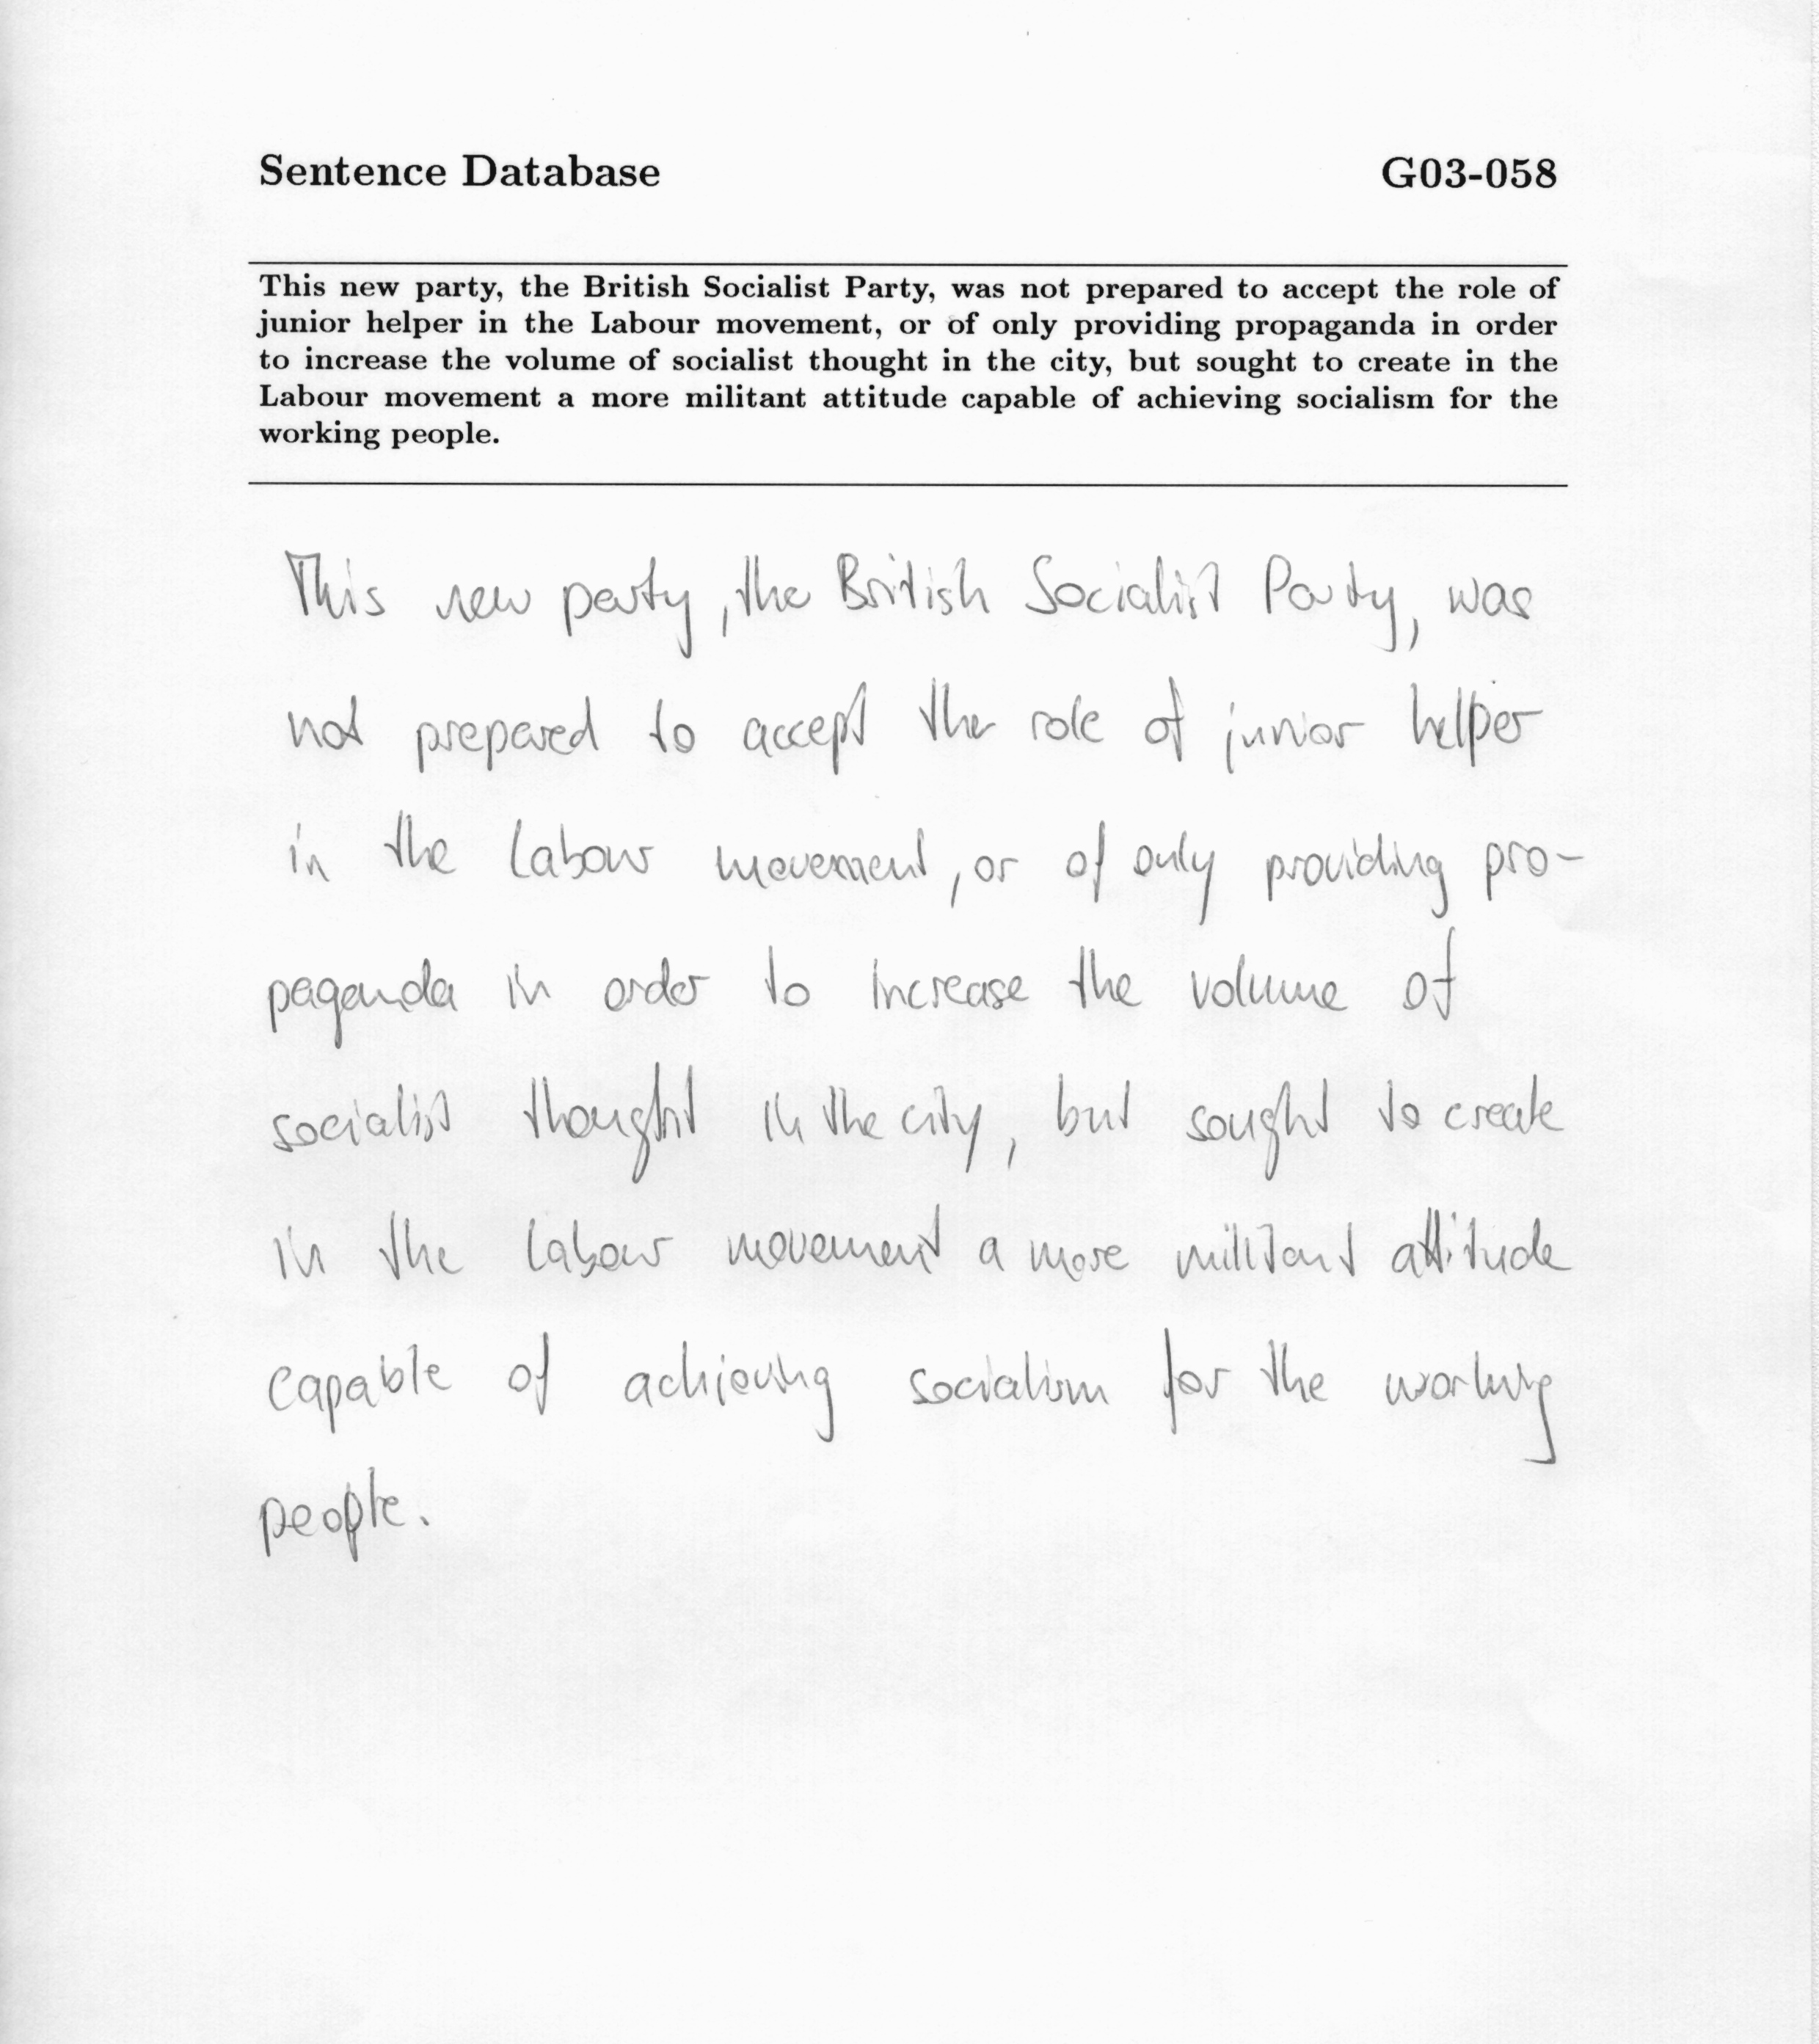 Sentence Database G03-058
This new party, the British Socialist Party, was not prepared to accept the role of
junior helper in the Labour movement, or of only providing propaganda in order
to increase the volume of socialist thought in the city, but sought to create in the
Labour movement a more militant attitude capable of achieving socialism for the
working people.
This new party, the British Socialist Party, was
not prepared to accept the role of junior helper
in the Labour movement, or of only providing pro-
paganda in order to increase the volume of
socialist thought in the city, but sought to create
in the Labour movement a more militant attitude
capable of achieving socialism for the working
people.